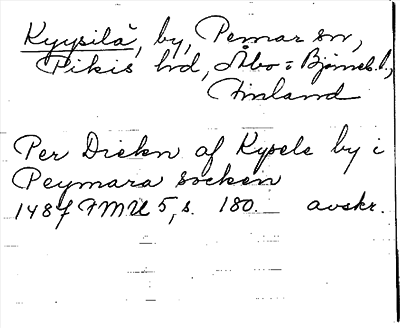 Kyysilä, by, Pemar sn,
Pikis hd, Åbo = Björneb. l.,
Finland
Per Diekn af Kysele by i
Peymara socken
148f FMU 5, s. 180. avskr.